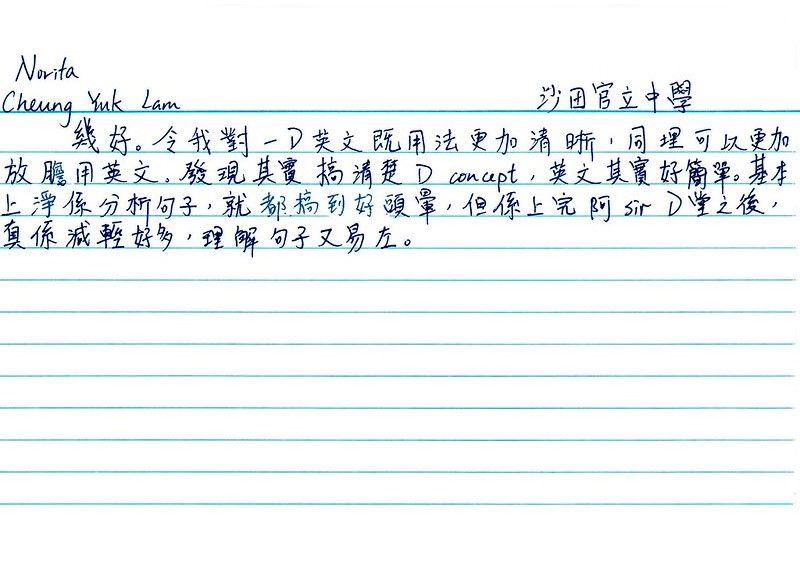 Norita
Cheung Yuk Lam 沙田官立中學
幾好。令我對一D英文既用法更加清晰，同埋可以更加
放膽用英文。發現其實搞清楚D concept，英文其實好簡單。基本
上淨係分析句子，就都搞到好頭暈，但係上完阿sir D堂之後，
真係減輕好多，理解句子又易左。